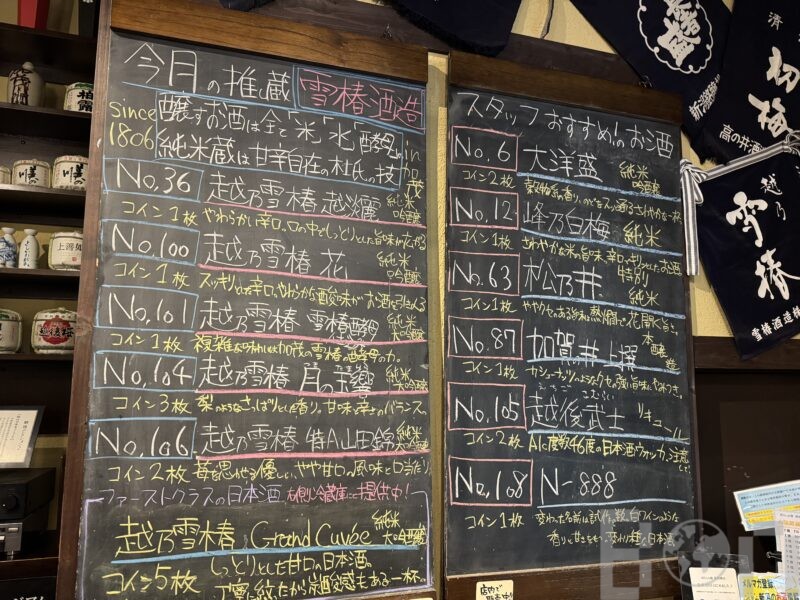 今月の推し蔵 雪椿酒造
since 1806
醸すお酒は全て「米」「水」「酵母」 in 加茂
純米蔵は甘辛自在の杜氏の技
No.36 越乃雪椿 越淡麗 純米吟醸
コイン1枚 やわらかい辛口。口の中でしっとりとした旨味が広がる
No.100 越乃雪椿 花 純米吟醸
コイン1枚 スッキリ辛口。やわらかな酸味がお酒を引き
No.101 越乃雪椿 雪椿酵母 純米大吟醸
コイン1枚 複雑な味わいは加茂の雪椿の酵母の力。
No.104 越乃雪椿 月の玉響 純米大吟醸
コイン3枚 梨のようなさっぱりとした香り。甘味と辛さのバランス。
No.106 越乃雪椿 特A山田錦 純米大吟醸
コイン2枚 苺を思わせる優しい、やや甘口。風味と口当たり
ファーストクラスの日本酒 右側冷蔵庫にて提供中!
越乃雪椿 Grand Cuvée 純米大吟醸
コイン5枚 しっとりとした甘口の日本酒。
丁寧に絞ったから炭酸感もある一杯。
スタッフおすすめ!のお酒
No.6 大洋盛 純米吟醸
コイン2枚 穀物系の香り。のどをスッ通るさわやかな一杯
No.12 峰乃白梅 純米
コイン1枚 さわやかな米の旨味。辛口のキリッとしたお酒
No.63 松乃井 特別純米
コイン1枚 ややクセのある味は熱燗で花開く旨さ。
No.87 加賀の井 上撰 本醸造
コイン1枚 カシューナッツのようなクセの強い旨味にやみつき。
No.105 越後武士 リキュール
えちごさむらい
コイン2枚 AIC度数46度の日本酒ウォッカ、注意して!
No.108 N-888
コイン1枚 変わった名前は試作の数。白ワインのような
香りと甘さをもつ変わり種の日本酒
高の井酒
越乃 雪椿
雪椿酒造株
柏露
上善如
越後桜
店内で
メルマガ登録